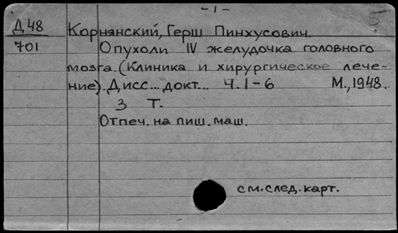 -1-
5
Д48 Корнянский, Герш Пинхусович.
701 Опухоли IV желудочка головного
мозга. (Клиника и хирургическое лече-
ние). Дисс... докт... Ч. 1-6 М., 1948.
3 Т.
Отпеч. на пиш. маш.
см. след. карт.